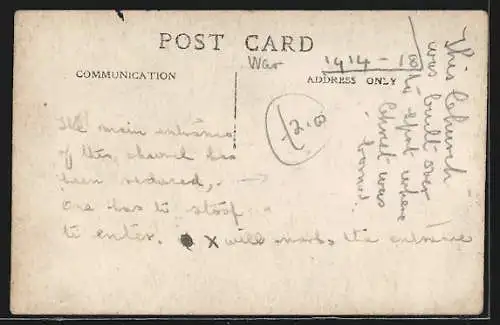 POST CARD
War 1914-18
COMMUNICATION
ADDRESS ONLY
The main entrance
of this church has
been reduced, →
one has to stoop
to enter. X will mark the entrance
This Church
was built over
the spot where
Christ was
borned.